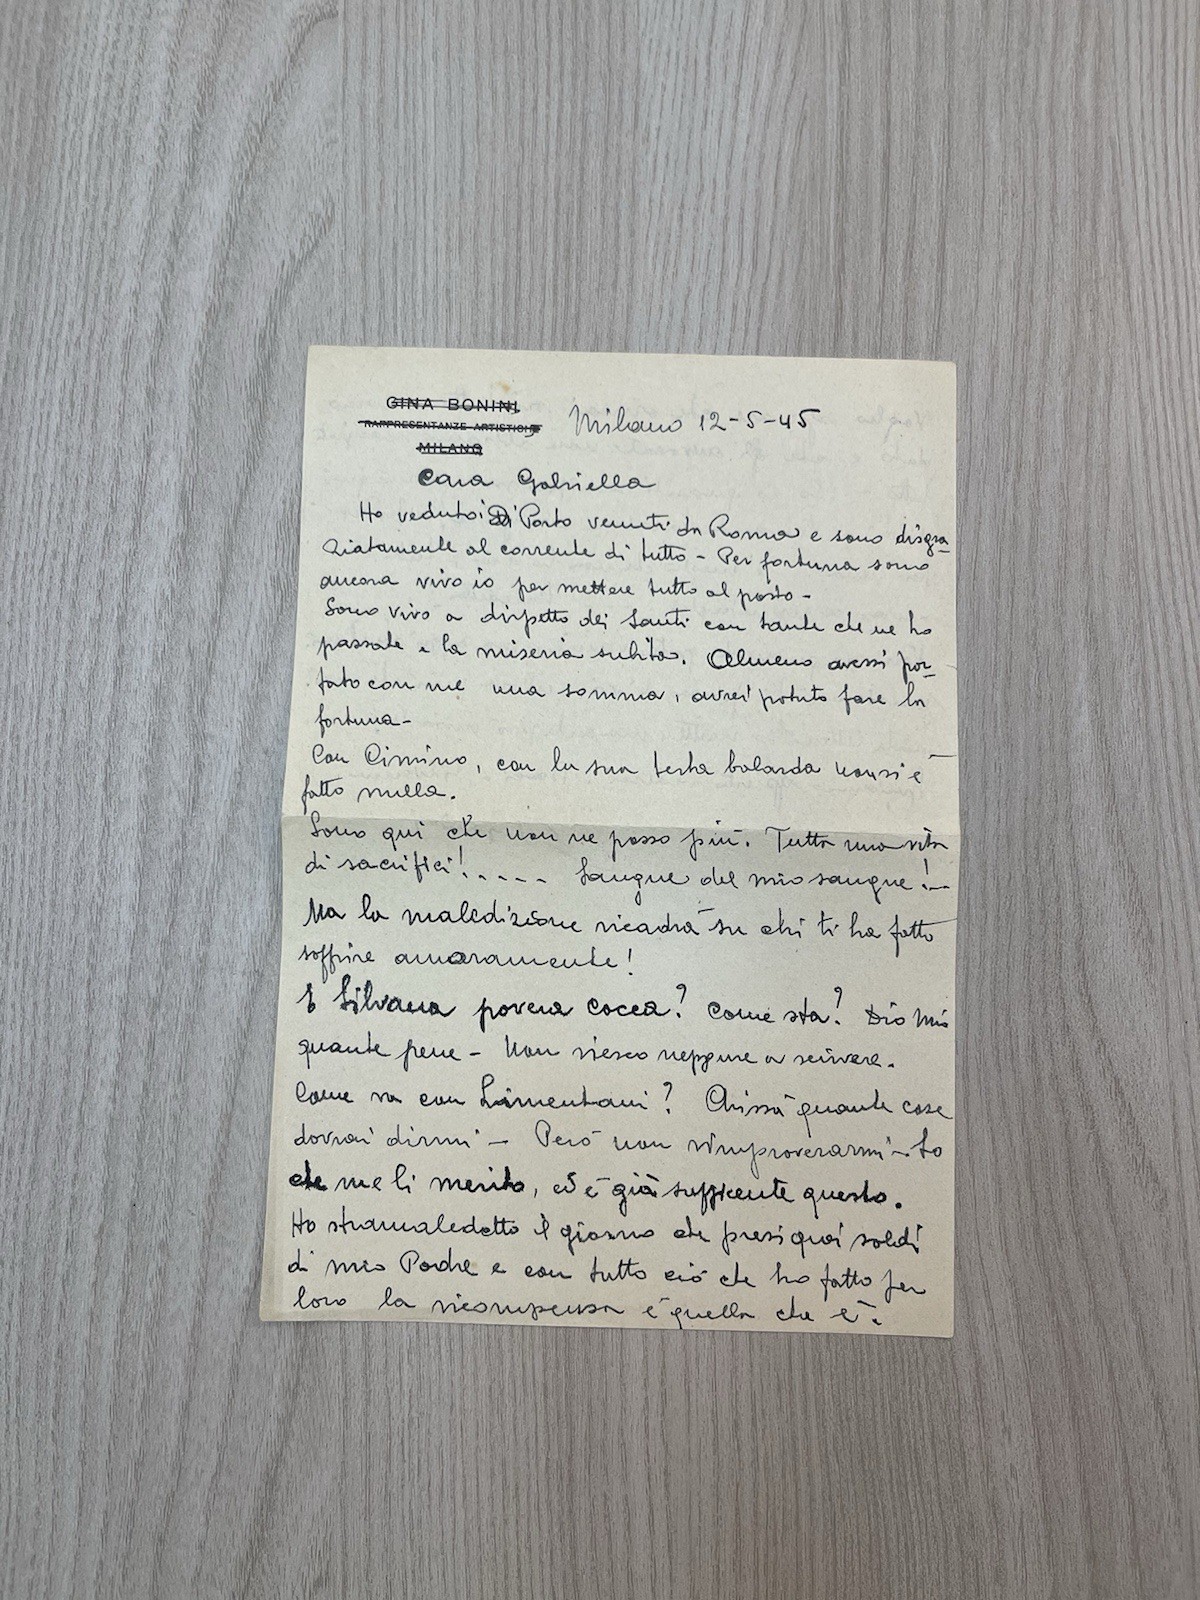 GINA BONINI
RAPPRESENTANZE ARTISTICHE
MILANO
Milano 12-5-45
Cara Gabriella
Ho veduto i Di Porto venuti da Roma e sono disgra-
ziatamente al corrente di tutto - Per fortuna sono
ancora vivo io per mettere tutto al posto -
Sono vivo a dispetto dei Santi con tante che ne ho
passate e la miseria subita. Almeno avessi por-
tato con me una somma, avrei potuto fare la
fortuna -
Con Cimino, con la sua testa balarda non si è
fatto nulla.
Sono qui che non ne posso più. Tutta una vita
di sacrifici! ..... Sangue del mio sangue! --
Ma la maledizione ricadrà su chi ti ha fatto
soffrire amaramente!
E Silvana povera cocca? Come sta? Dio Mio
quante pene - Non riesco neppure a scrivere.
Come va con Limentani? Chissà quante cose
dovrai dirmi - Però non rimproverarmi - So
che me li merito, ed è già sufficente questo.
Ho stramaledetto il giorno che presi quei soldi
di mio Padre e con tutto ciò che ho fatto per
loro la ricompensa è quella che è.